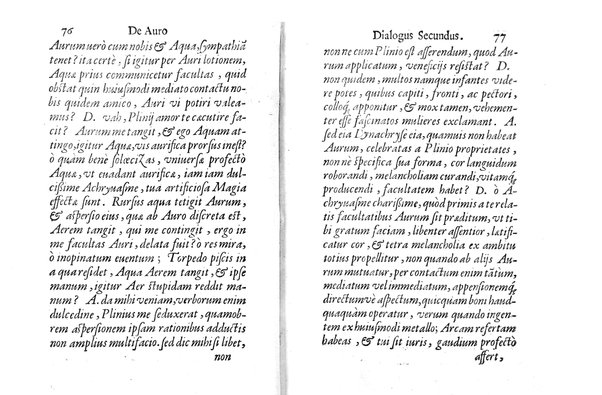 76 De Auro
Aurum uerò cum nobis & Aqua, sympathiã
tenet? ita certè, si igitur per Auri lotionem,
Aquæ prius communicetur facultas, quid
obstat quin huiusmodi mediato contactu no-
bis quidem amico, Auri vi potiri valea-
mus? D. vah, Plinij amor te cæcutire fa-
cit? Aurum me tangit, & ego Aquam at-
tingo, numquid Aqua, vis aurifica prorsus inest?
ò quàm benè solæcizas, vniuersa profectò
Aqua, vt euadant aurificæ, iam iam dul-
cissime Achryuasme, tua artificiosa Magia
effecta sunt. Rursus aqua tetigit Aurum,
& aspersio eius, quæ ab Auro discreta est,
Aerem tangit, qui me contingit, ergo in
me facultas Auri, delata fuit? ò res mira,
ò inopinatum euentum; Torpedo piscis in
a qua residet, Aqua Aerem tangit, & ipse
manum, igitur Aer stupidam reddit ma-
num? A. da mihi veniam, verborum enim
dulcedine, Plinius me seduxerat, quamob-
rem aspersionem ipsam rationibus adductis
non amplius multifacio. sed dic mihi si libet,
non
Dialogus Secundus. 77
non ne cum Plinio est asserendum, quod Au-
rum applicatum, veneficijs resistat? D.
non quidem, multos namque infantes vide-
re potes, quibus capiti, fronti, ac pectori,
colloq; apponitur, & mox tamen, vehemen-
ter esse fascinatos mulieres exclamant. A.
sed eia Lynachryse eia, quamuis non habeat
Aurum, celebratas a Plinio proprietates,
non nè specifica sua forma, cor languidum
roborandi, melancholiam curandi, vitamq́;
producendi, facultatem habet? D. ò A-
chryuasme charissime, quòd primis a te rela-
tis facultatibus Aurum sit præditum, vt ti-
bi gratum faciam, libenter assentior, lætifi-
catur cor, & tetra melancholia ex ambitu
totius propellitur, non quando ab alijs Au-
rum mutuatur, per contactum enim tãtum,
mediatum vel immediatum, appensionemq́;
directum vè aspectum, quicquam boni haud-
quaquàm operatur, verum quando ingen-
tem ex huiusmodi metallo; Arcam refertam
habeas, & tui sit iuris, gaudium profectò
affert,